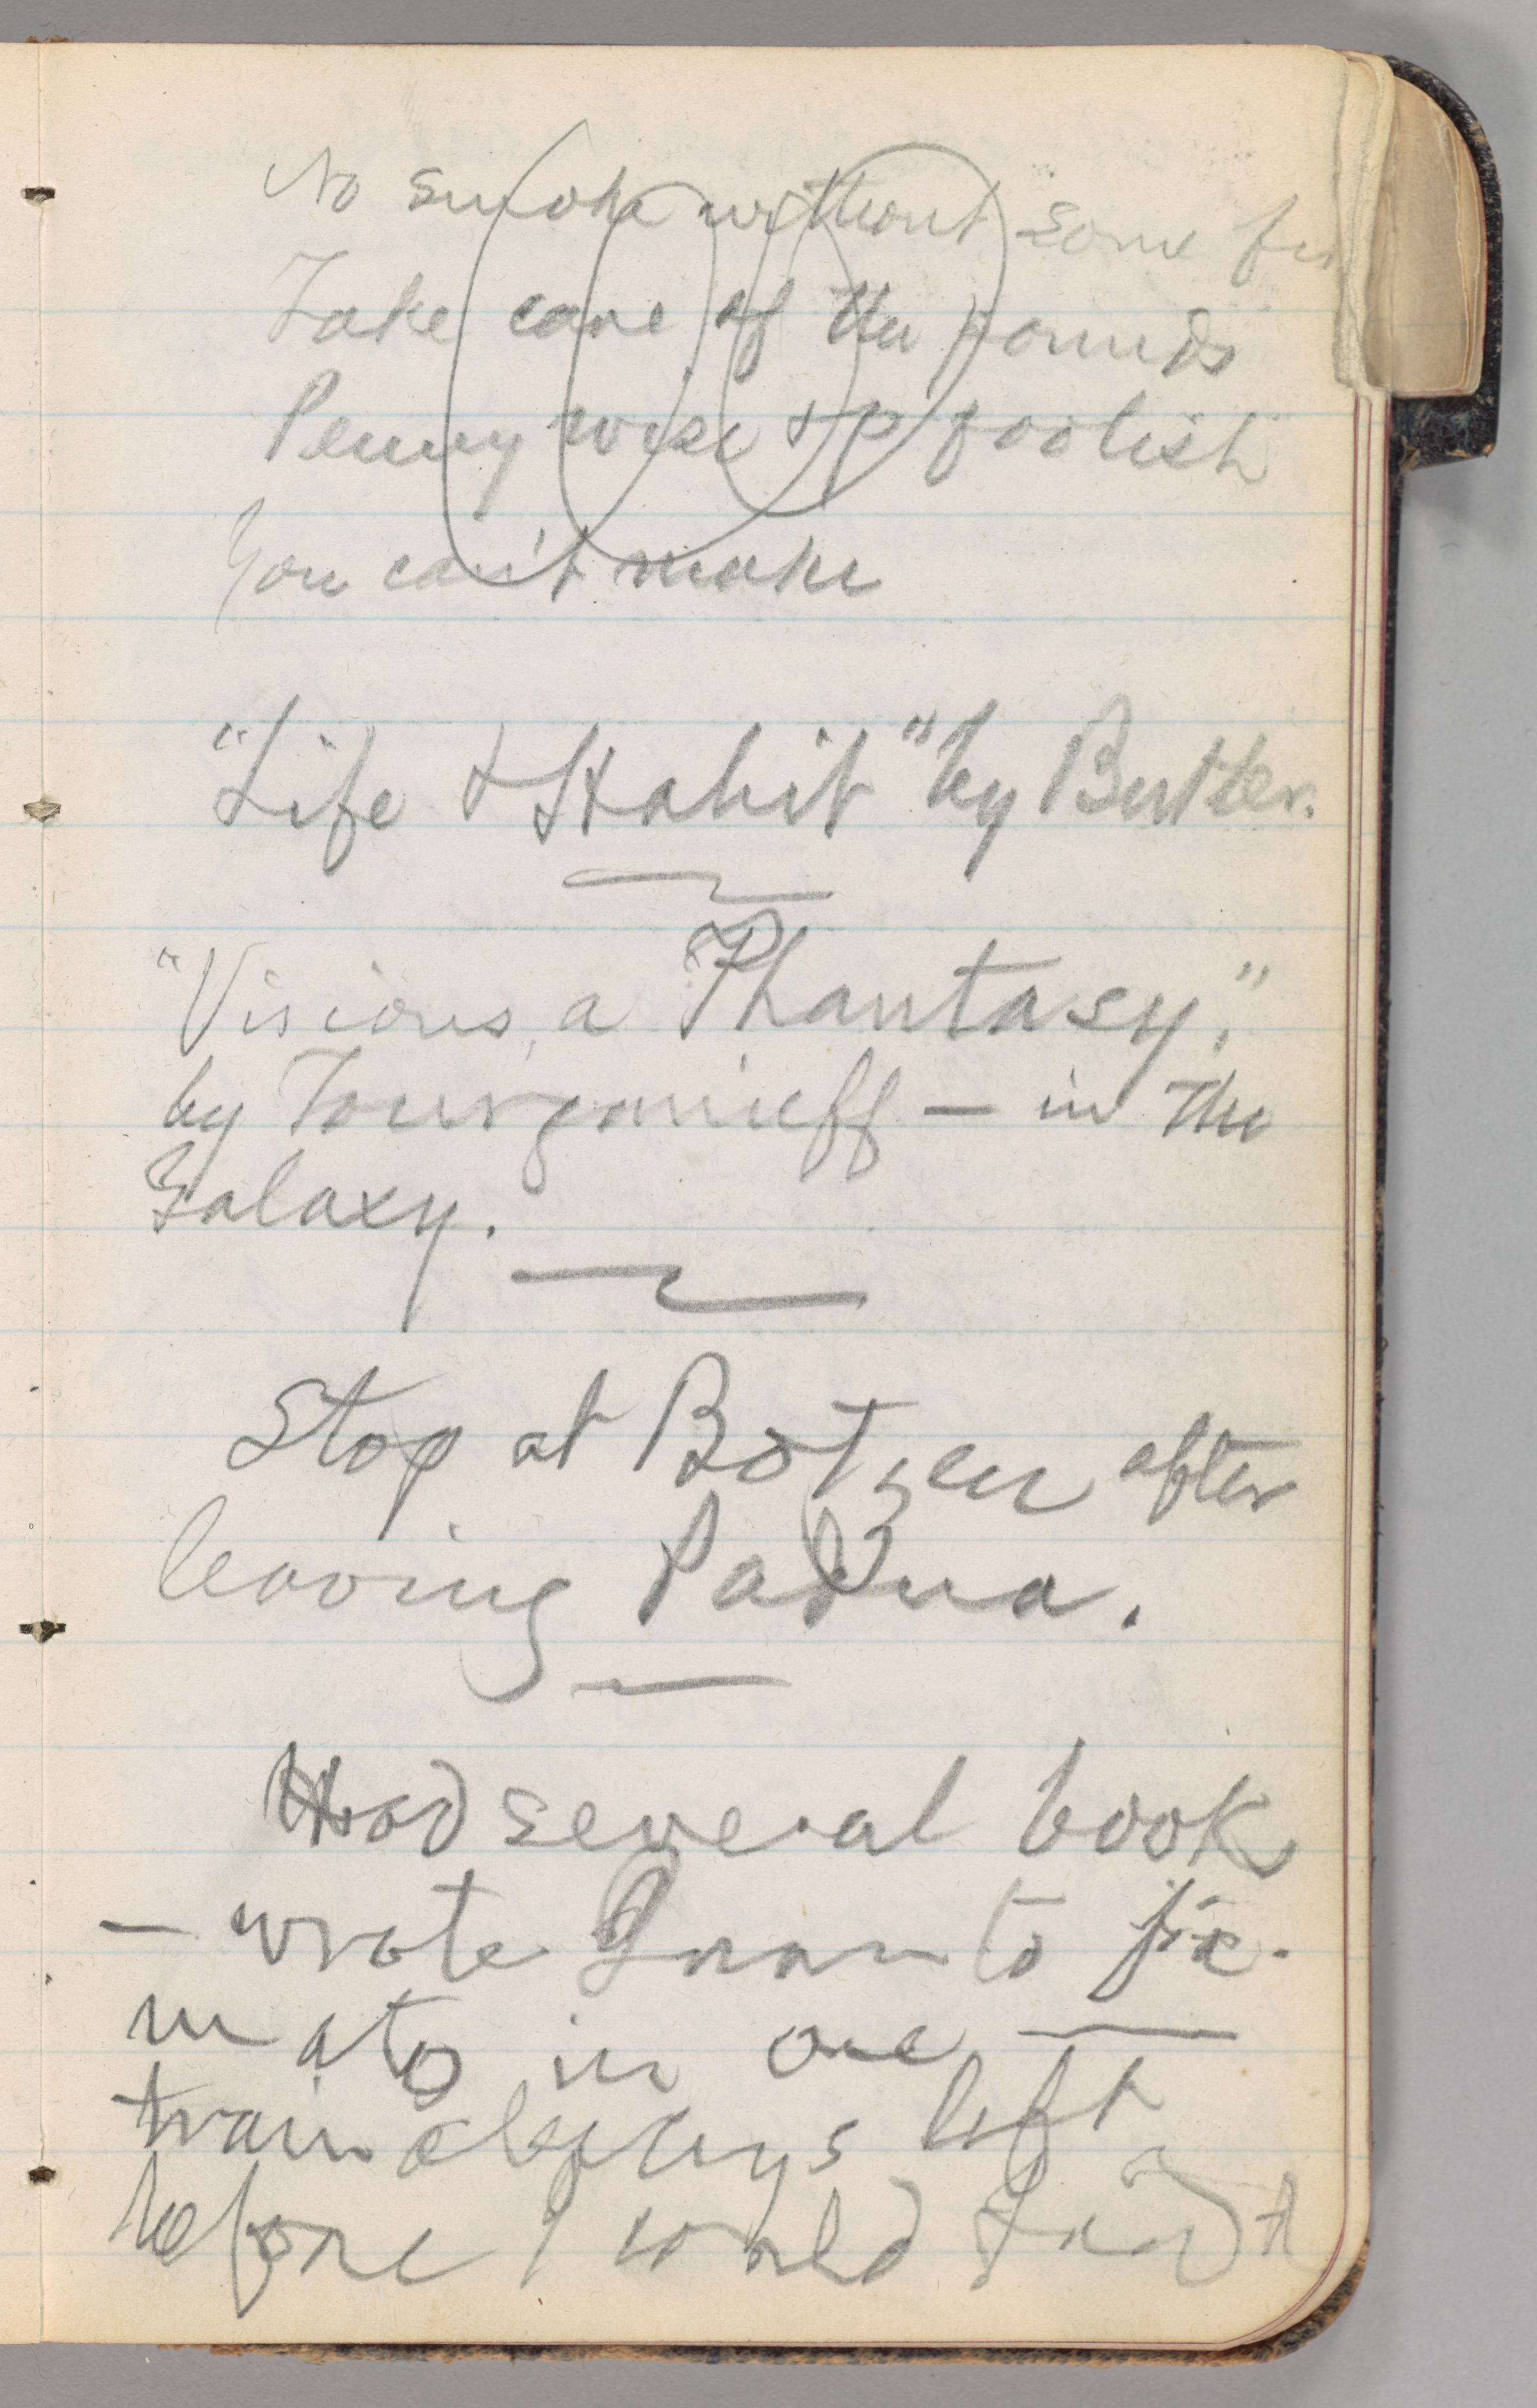 No smoke without some fir
Take care of the pounds
Penny wise & p foolish
You can't make
"Life & Habit" by Butler.
"Visions, a Phantasy,"
by Tourganieff — in the
Galaxy.
Stop at Botzen after
leaving Padua.
Had several book
— wrote to
in one —
train always left
before I could find it